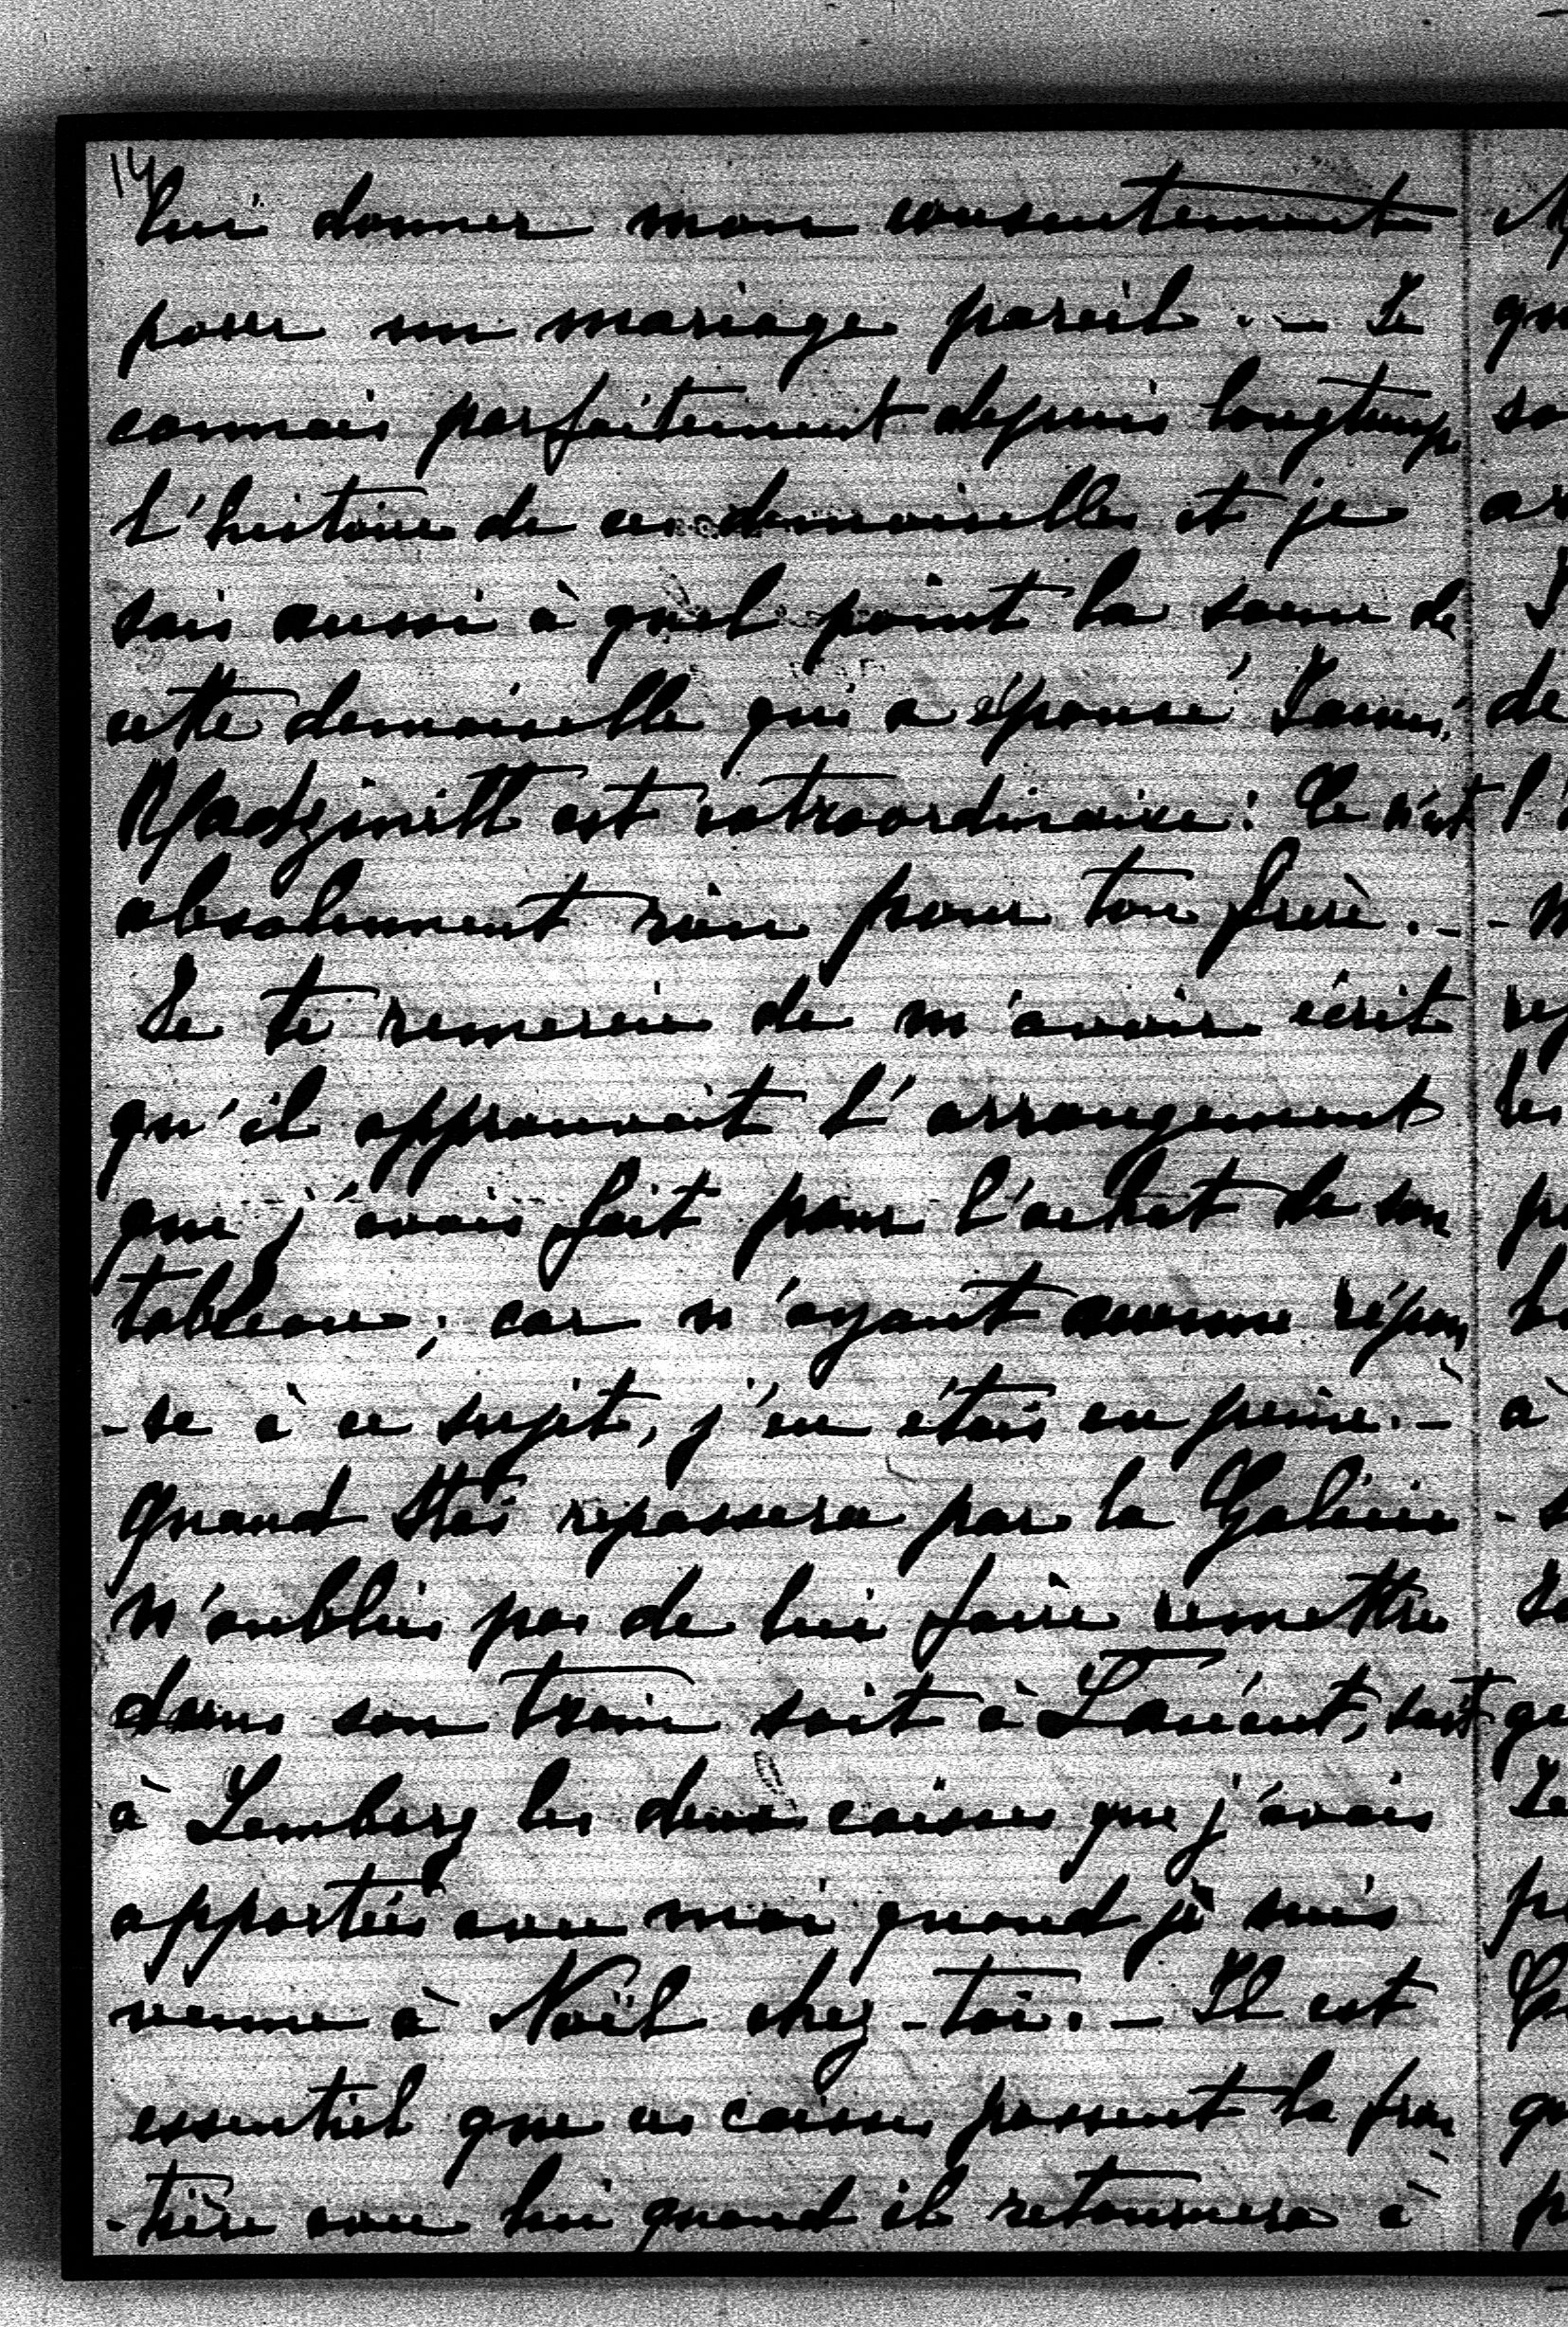 14
lui donner mon consentement
pour un mariage pareil. — Je
connais parfaitement depuis longtemps
l'histoire de ces demoiselles et je
sais aussi à quel point la soeur de
cette demoiselle qui a épousé
est extraordinaire: Ce n'est
absolument rien pour ton frère. —
Je te remercie de m'avoir écrit
qu'il approuvait l'arrangement
que j'avais fait pour l'achat de son
tableau; car n'ayant aucune répon
-se à ce sujet, j'en étais en peine. —
Quand repassera par la Galicie
n'oublies pas de lui faire remettre
dans son train soit à Łańcut, soit
à Lemberg les deux caisses que j'avais
apportées avec moi quand je suis
venue à Noël chez-toi. — Il est
essentiel que ces caisses passent la fron
-tière avec lui quand il retournera à